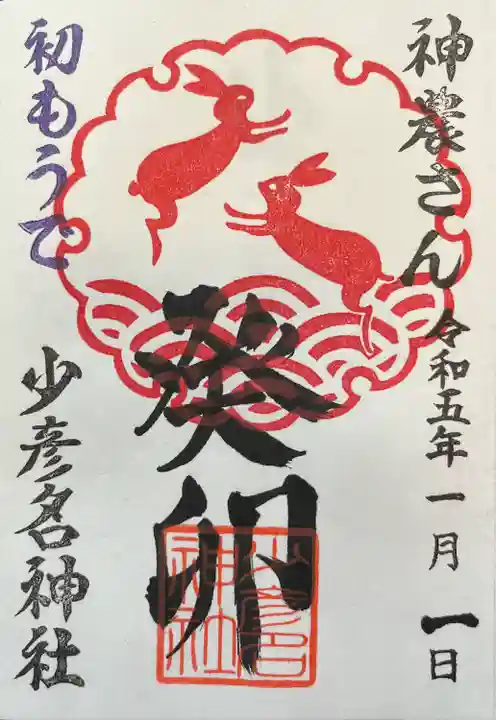 神農さん 令和五年一月一日
癸卯
少彦名神社
初もうで
少彦名神社